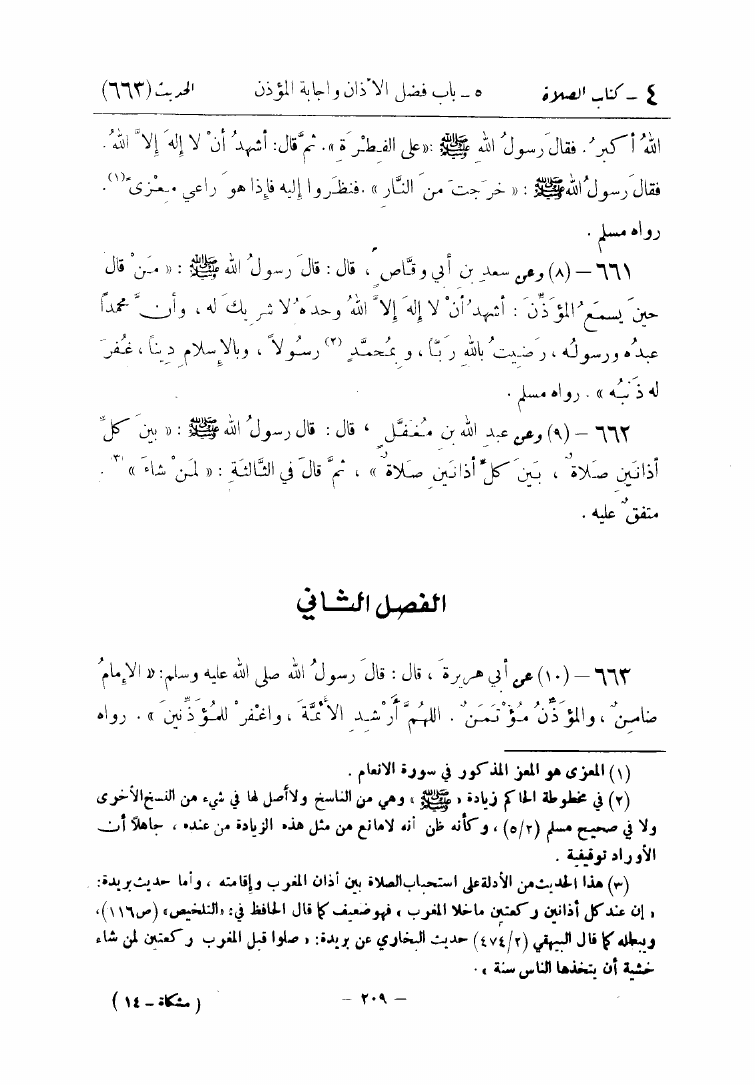 ٤ - كتاب الصلاة ٥ - باب فضل الأذان واجابة المؤذن الحديث (٦٦٣)
اللهُ أكبرُ. فقالَ رسولُ اللهِ ﷺ :«على الفِطْرَةِ». ثمَّ قال: أشهدُ أنْ لا إِلهَ إلاَّ اللهُ.
فقالَ رسولُ اللهِ ﷺ : « خرَجتَ منَ النَّارِ » .فنظَروا إليه فإذا هوَ راعي مِعْزىً(١).
رواه مسلم .
٦٦١ – (٨) وعن سعدِ بنِ أبي وقَّاصٍ ، قال : قالَ رسولُ اللهِ ﷺ : « مَنْ قالَ
حينَ يسمَعُ المُؤَذِّنَ : أشهدُ أنْ لا إِلهَ إِلاَّ اللهُ وحدَهُ لا شريكَ له ، وأنَّ محمداً
عبدُه ورسولُه ، رَضيتُ باللهِ رَبَّاً ، وبمُحمَّدٍ (٢) رسُولاً ، وبالإِسلامِ دِيناً ، غُفِرَ
له ذَنبُه » . رواه مسلم .
٦٦٢ – (٩) وعن عبدِ الله بنِ مُغفَّلٍ ، قال : قال رسولُ اللهِ ﷺ : « بينَ كلِّ
أذانَينِ صلاةٌ ، بَينَ كلِّ أذانَينِ صلاةٌ » ، ثمَّ قالَ في الثَّالثةِ : « لمَنْ شاءَ » (٣) .
متفقٌ عليه .
الفصل الثاني
٦٦٣ – (١٠) عن أبي هريرةَ ، قال : قالَ رسولُ اللهِ صلى الله عليه وسلم: « الإِمامُ
ضامِنٌ ، والمؤذِّنُ مُؤْتمَنٌ . اللهُمَّ أَرْشِدِ الأَئمَّةَ ، واغفرْ للمُؤَذِّنينَ » . رواه
(١) المعزى هو المعز المذكور في سورة الانعام .
(٢) في مخطوطة الحاكم زيادة « ﷺ » ، وهي من الناسخ ولاأصل لها في شيء من النسخ الأخرى
ولا في صحيح مسلم (٥/٢) ، وكأنه ظن أنه لامانع من مثل هذه الزيادة من عنده ، جاهلاً أن
الأوراد توقيفية .
(٣) هذا الحديث من الأدلة على استحباب الصلاة بين أذان المغرب وإقامته ، وأما حديث بريدة:
« إن عند كل أذانين ركعتين ماخلا المغرب » فهو ضعيف كما قال الحافظ في: «التلخيص» (ص١١٦)،
ويبطله كما قال البيهقي (٤٧٤/٢) حديث البخاري عن بريدة: « صلوا قبل المغرب ركعتين لمن شاء
خشية أن يتخذها الناس سنة » .
– ٢٠٩ – ( مشكاة – ١٤ )